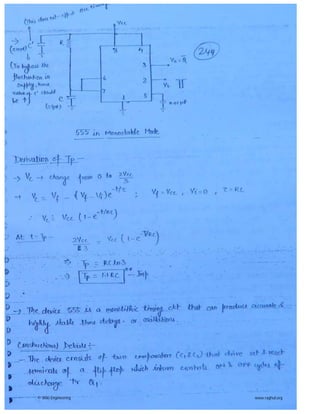 (this does not affect the timing)
Vcc
(249)
R
C'
8
4
3
6
2
7
1
5
C
0.01μF
(To bypass the
fluctuation in
supply, hence
value of C' should
be ↑)
555 in Monostable Mode
Derivation of Tp -
→ Vc → change from 0 to 2Vcc/3
→ Vc = Vf - (Vf - Vi)e^-t/τ ; Vf = Vcc, Vi = 0, τ = RC
∴ Vc = Vcc (1 - e^-t/RC)
At t = Tp - 2Vcc/3 = Vcc (1 - e^-T/RC)
⇒ Tp = RC ln3
⇒ Tp = 1.1 RC ** Imp
→ The device 555 is a monolithic timing ckt that can produce accurate &
highly stable time delays or oscillations.
Constructional Details :-
- The device consists of two comparators (C1 & C2) that drive set & reset
terminals of a flip flop which inturn controls on & off cycles of
discharge Tr Q1.
© Wiki Engineering
www.raghul.org